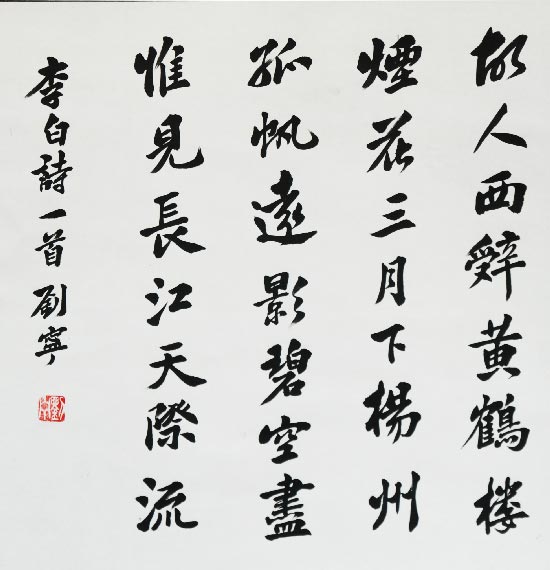 故人西辤黄鶴楼
煙花三月下揚州
孤帆遠影碧空盡
惟見長江天際流
李白詩一首 劉寧